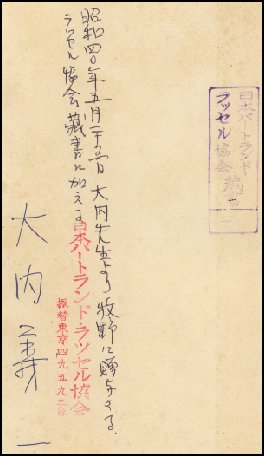 日本バートランド・
ラッセル協会 蔵書
昭和四〇年五月 大内先生より牧野に贈与さる。
ラッセル協会蔵書に加える
日本バートランド・ラッセル協会
振替東京四九五九二
大内義一